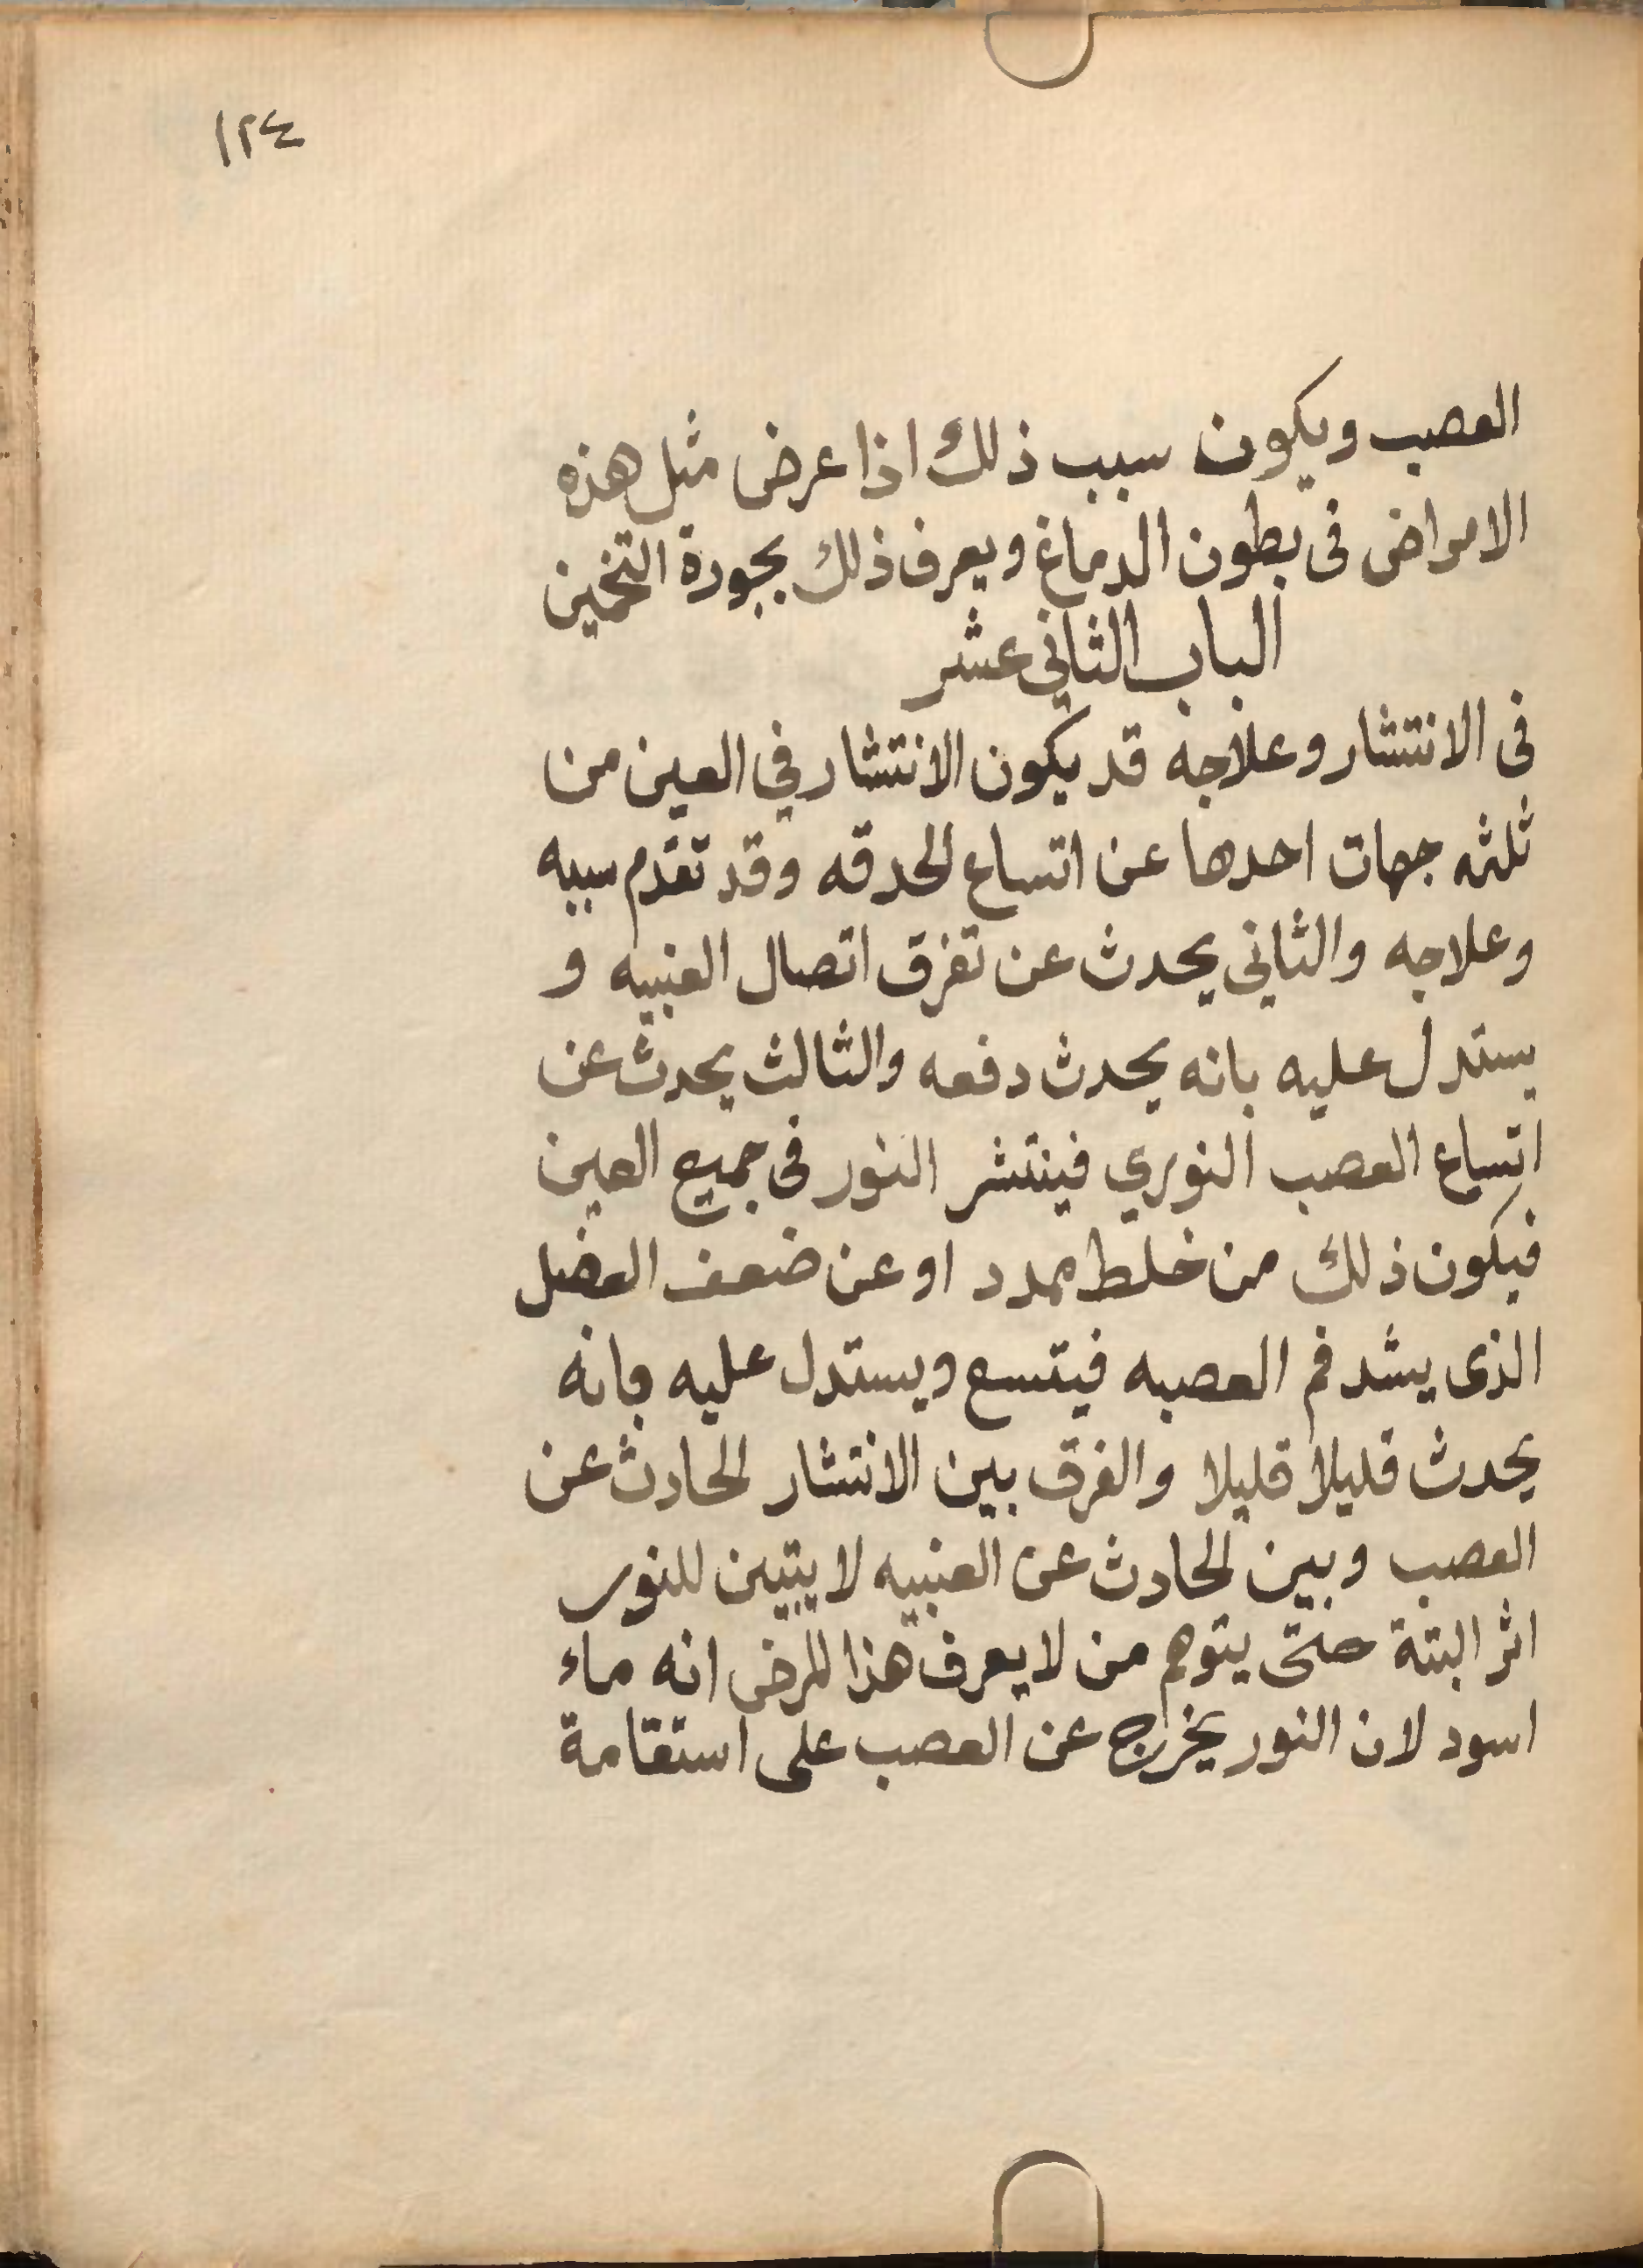 ١٢٤
العصب ويكون سبب ذلك اذا عرض مثل هذه
الامراض فى بطون الدماغ ويعرف ذلك بجودة التخمين
الباب الثاني عشر
فى الانتشار وعلاجه قد يكون الانتشار في العين من
ثلثه جهات احدها عن اتساع الحدقه وقد تقدم سببه
وعلاجه والثاني يحدث عن تفرق اتصال العنبيه و
يستدل عليه بانه يحدث دفعه والثالث يحدث عن
اتساع العصب النوري فينتشر النور فى جميع العين
فيكون ذلك من خلط ممدد او عن ضعف العضل
الذى يشد فم العصبه فيتسع ويستدل عليه بانه
يحدث قليلا قليلا والفرق بين الانتشار الحادث عن
العصب وبين الحادث عن العنبيه لا يتبين للنور
اثر البتة حتى يتوهم من لا يعرف هذا المرض انه ماء
اسود لان النور يخرج عن العصب على استقامة